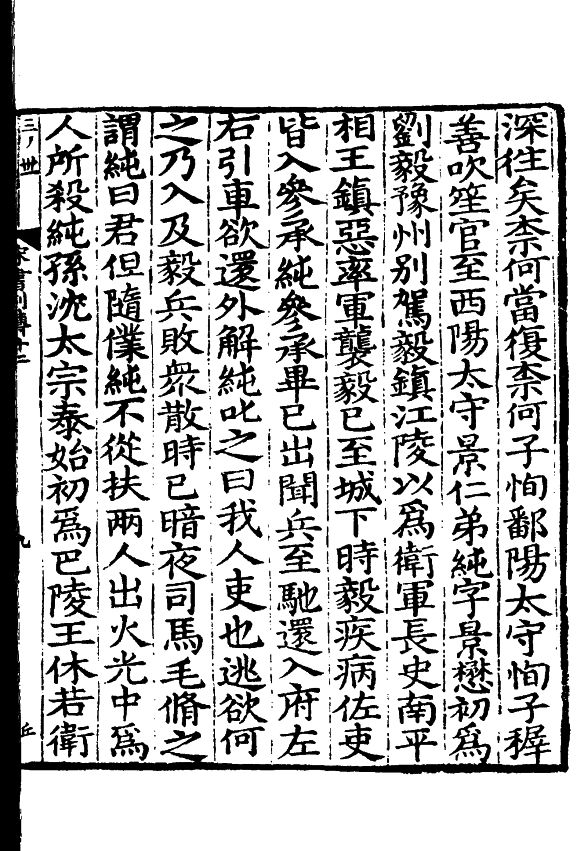 深往矣柰何當復柰何子恂鄱陽太守恂子穉
善吹笙官至西陽太守景仁弟純字景懋初爲
劉毅豫州别駕毅鎮江陵以爲衛軍長史南平
相王鎮惡率軍襲毅已至城下時毅疾病佐吏
皆入參承純參承畢已出聞兵至馳還入府左
右引車欲還外解純叱之曰我人吏也逃欲何
之乃入及毅兵敗衆散時已暗夜司馬毛脩之
謂純曰君但隨僕純不從扶兩人出火光中爲
人所殺純孫沈太宗泰始初爲巴陵王休若衛
宋書列傳十二
九